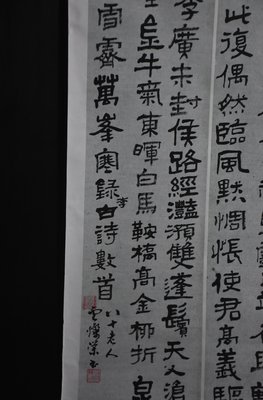 此復偶然臨風默惆悵使君高義
李廣未封侯路經灩澦雙蓬鬢天入滄
牛氣東暉白馬鞍橋高金柳折
雪霽萬峯寒錄李古詩數首
八十老人